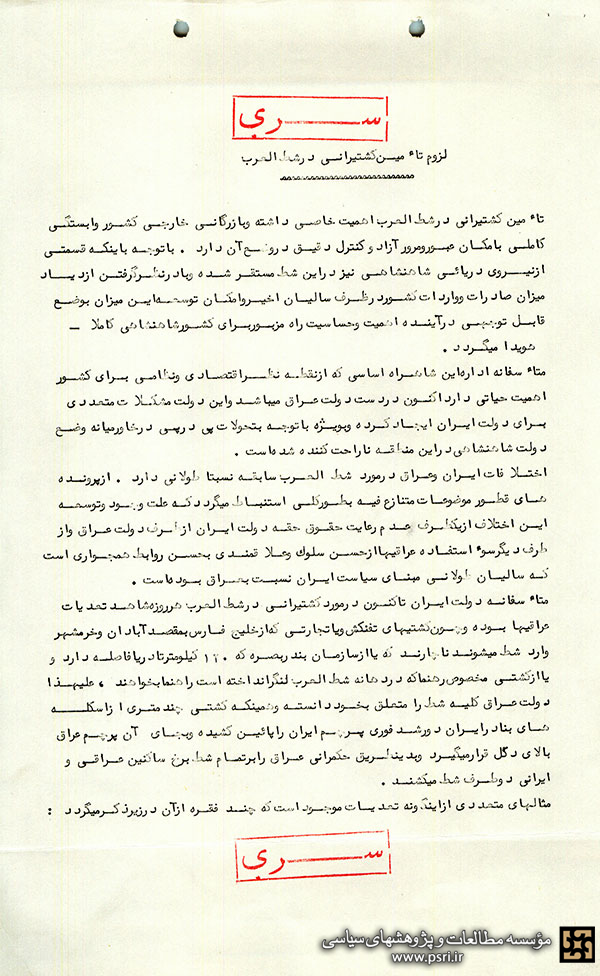 سری
لزوم تاء مین کشتیرانی در شط العرب
تاء مین کشتیرانی در شط العرب اهمیت خاصی داشته و بازرگانی خارجی کشور وابستگی
کاملی بامکان عبور و مرور آزاد و کنترل دقیق در وضع آن دارد . با توجه باینکه قسمتی
از نیروی دریائی شاهنشاهی نیز در این شط مستقر شده و با در نظر گرفتن ازدیاد
میزان صادرات و واردات کشور در ظرف سالیان اخیر و امکان توسعه این میزان بوضع
قابل توجهی در آینده اهمیت و حساسیت راه مزبور برای کشور شاهنشاهی کاملا –
هویدا میگردد .
متاء سفانه اداره این شاهراه اساسی که از نقطه نظر اقتصادی و نظامی برای کشور
اهمیت حیاتی دارد اکنون در دست دولت عراق میباشد و این دولت مشکلات متعددی
برای دولت ایران ایجاد کرده و بویژه با توجه بتحولات پی در پی در خاورمیانه وضع
دولت شاهنشاهی در این منطقه ناراحت کننده شده است .
اختلافات ایران و عراق در مورد شط العرب سابقه نسبتا طولانی دارد . از پرونده
های قطور موضوعات متنازع فیه بطور کلی استنباط میگردد که علت وجود و توسعه
این اختلاف از یکطرف عدم رعایت حقوق حقه دولت ایران از طرف دولت عراق و از
طرف دیگر سوء استفاده عراقیها از حسن سلوک و علاقمندی بحسن روابط همجواری است
که سالیان طولانی مبنای سیاست ایران نسبت بعراق بوده است .
متاء سفانه دولت ایران تاکنون در مورد کشتیرانی در شط العرب هر روزه شاهد تعدیات
عراقیها بوده و چون کشتیهای نفتکش و یا تجارتی که از خلیج فارس بمقصد آبادان و خرمشهر
وارد شط میشوند ناچارند که یا از سازمان بندر بصره که ۱۲۰ کیلومتر تا دریا فاصله دارد و
یا از کشتی مخصوص رهنما که در دهانه شط العرب لنگر انداخته است راهنما بخواهند ، علیهذا
دولت عراق کلیه شط را متعلق بخود دانسته و همینکه کشتی چند متری از اسکله
های بنادر ایران دور شد فوری پرچم ایران را پائین کشیده و بجای آن پرچم عراق
بالای دگل قرار میگیرد و بدینطریق حکمرانی عراق را بر تمام شط برخ ساکنین عراقی و
ایرانی دو طرف شط میکشند .
مثالهای متعددی از اینگونه تعدیات موجود است که چند فقره از آن در زیر ذکر میگردد :
سری
مؤسسه مطالعات و پژوهشهای سیاسی
www.psri.ir